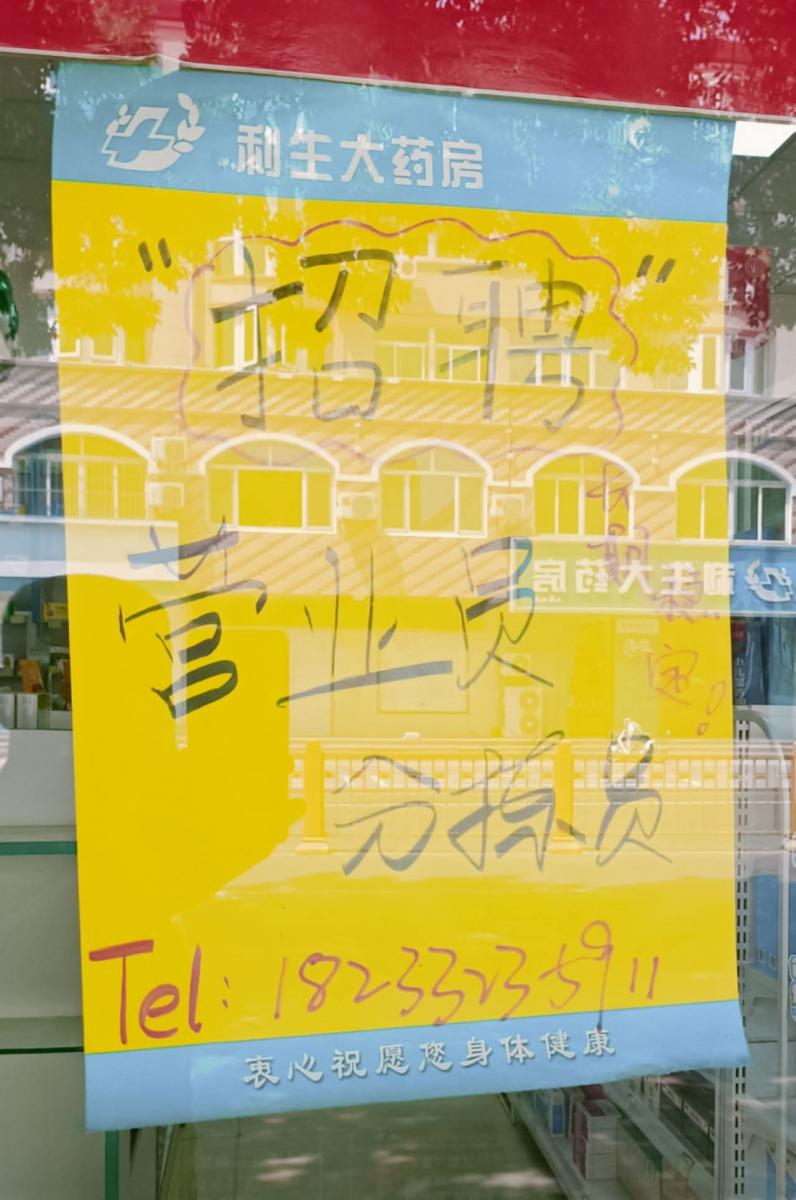 利生大药房
"招聘"
长期稳定!
利生大药房
营业员
分拣员
Tel: 18233235911
衷心祝愿您身体健康